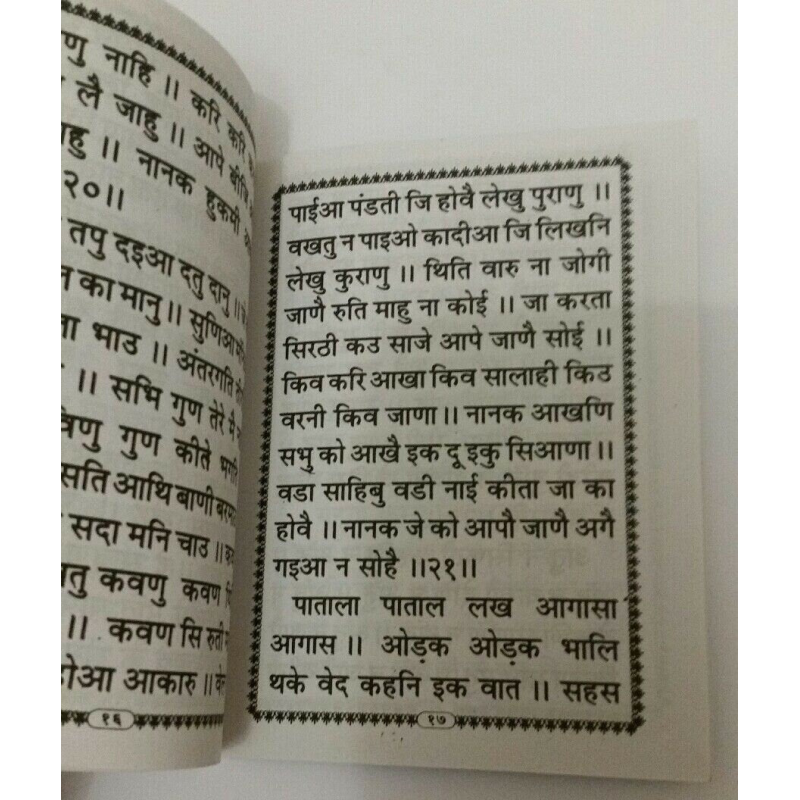 णु नाहि ।। करि करि
लै जाहु ।। आपे बीजि
हु ।। नानक हुकमी
२०।।
तपु दइआ दतु दानु ।।
का मानु ।। सुणिआ
भाउ ।। अंतरगति
।। सभि गुण तेरे मै
विणु गुण कीते भगति
सति आथि बाणी बरमा
सदा मनि चाउ ।।
कवणु कवण
।। कवण सि रुती
होआ आकारु ।। वेल
१६
पाईआ पंडती जि होवै लेखु पुराणु ।।
वखतु न पाइओ कादीआ जि लिखनि
लेखु कुराणु ।। थिति वारु ना जोगी
जाणै रुति माहु ना कोई ।। जा करता
सिरठी कउ साजे आपे जाणै सोई ।।
किव करि आखा किव सालाही किठ
वरनी किव जाणा ।। नानक आखणि
सभु को आखै इक दू इकु सिआणा ।।
वडा साहिबु वडी नाई कीता जा का
होवै ।। नानक जे को आपौ जाणै अगै
गइआ न सोहै ।।२१।।
पाताला पाताल लख आगासा
आगास ।। ओड़क ओड़क भालि
थके वेद कहनि इक वात ।। सहस
१७